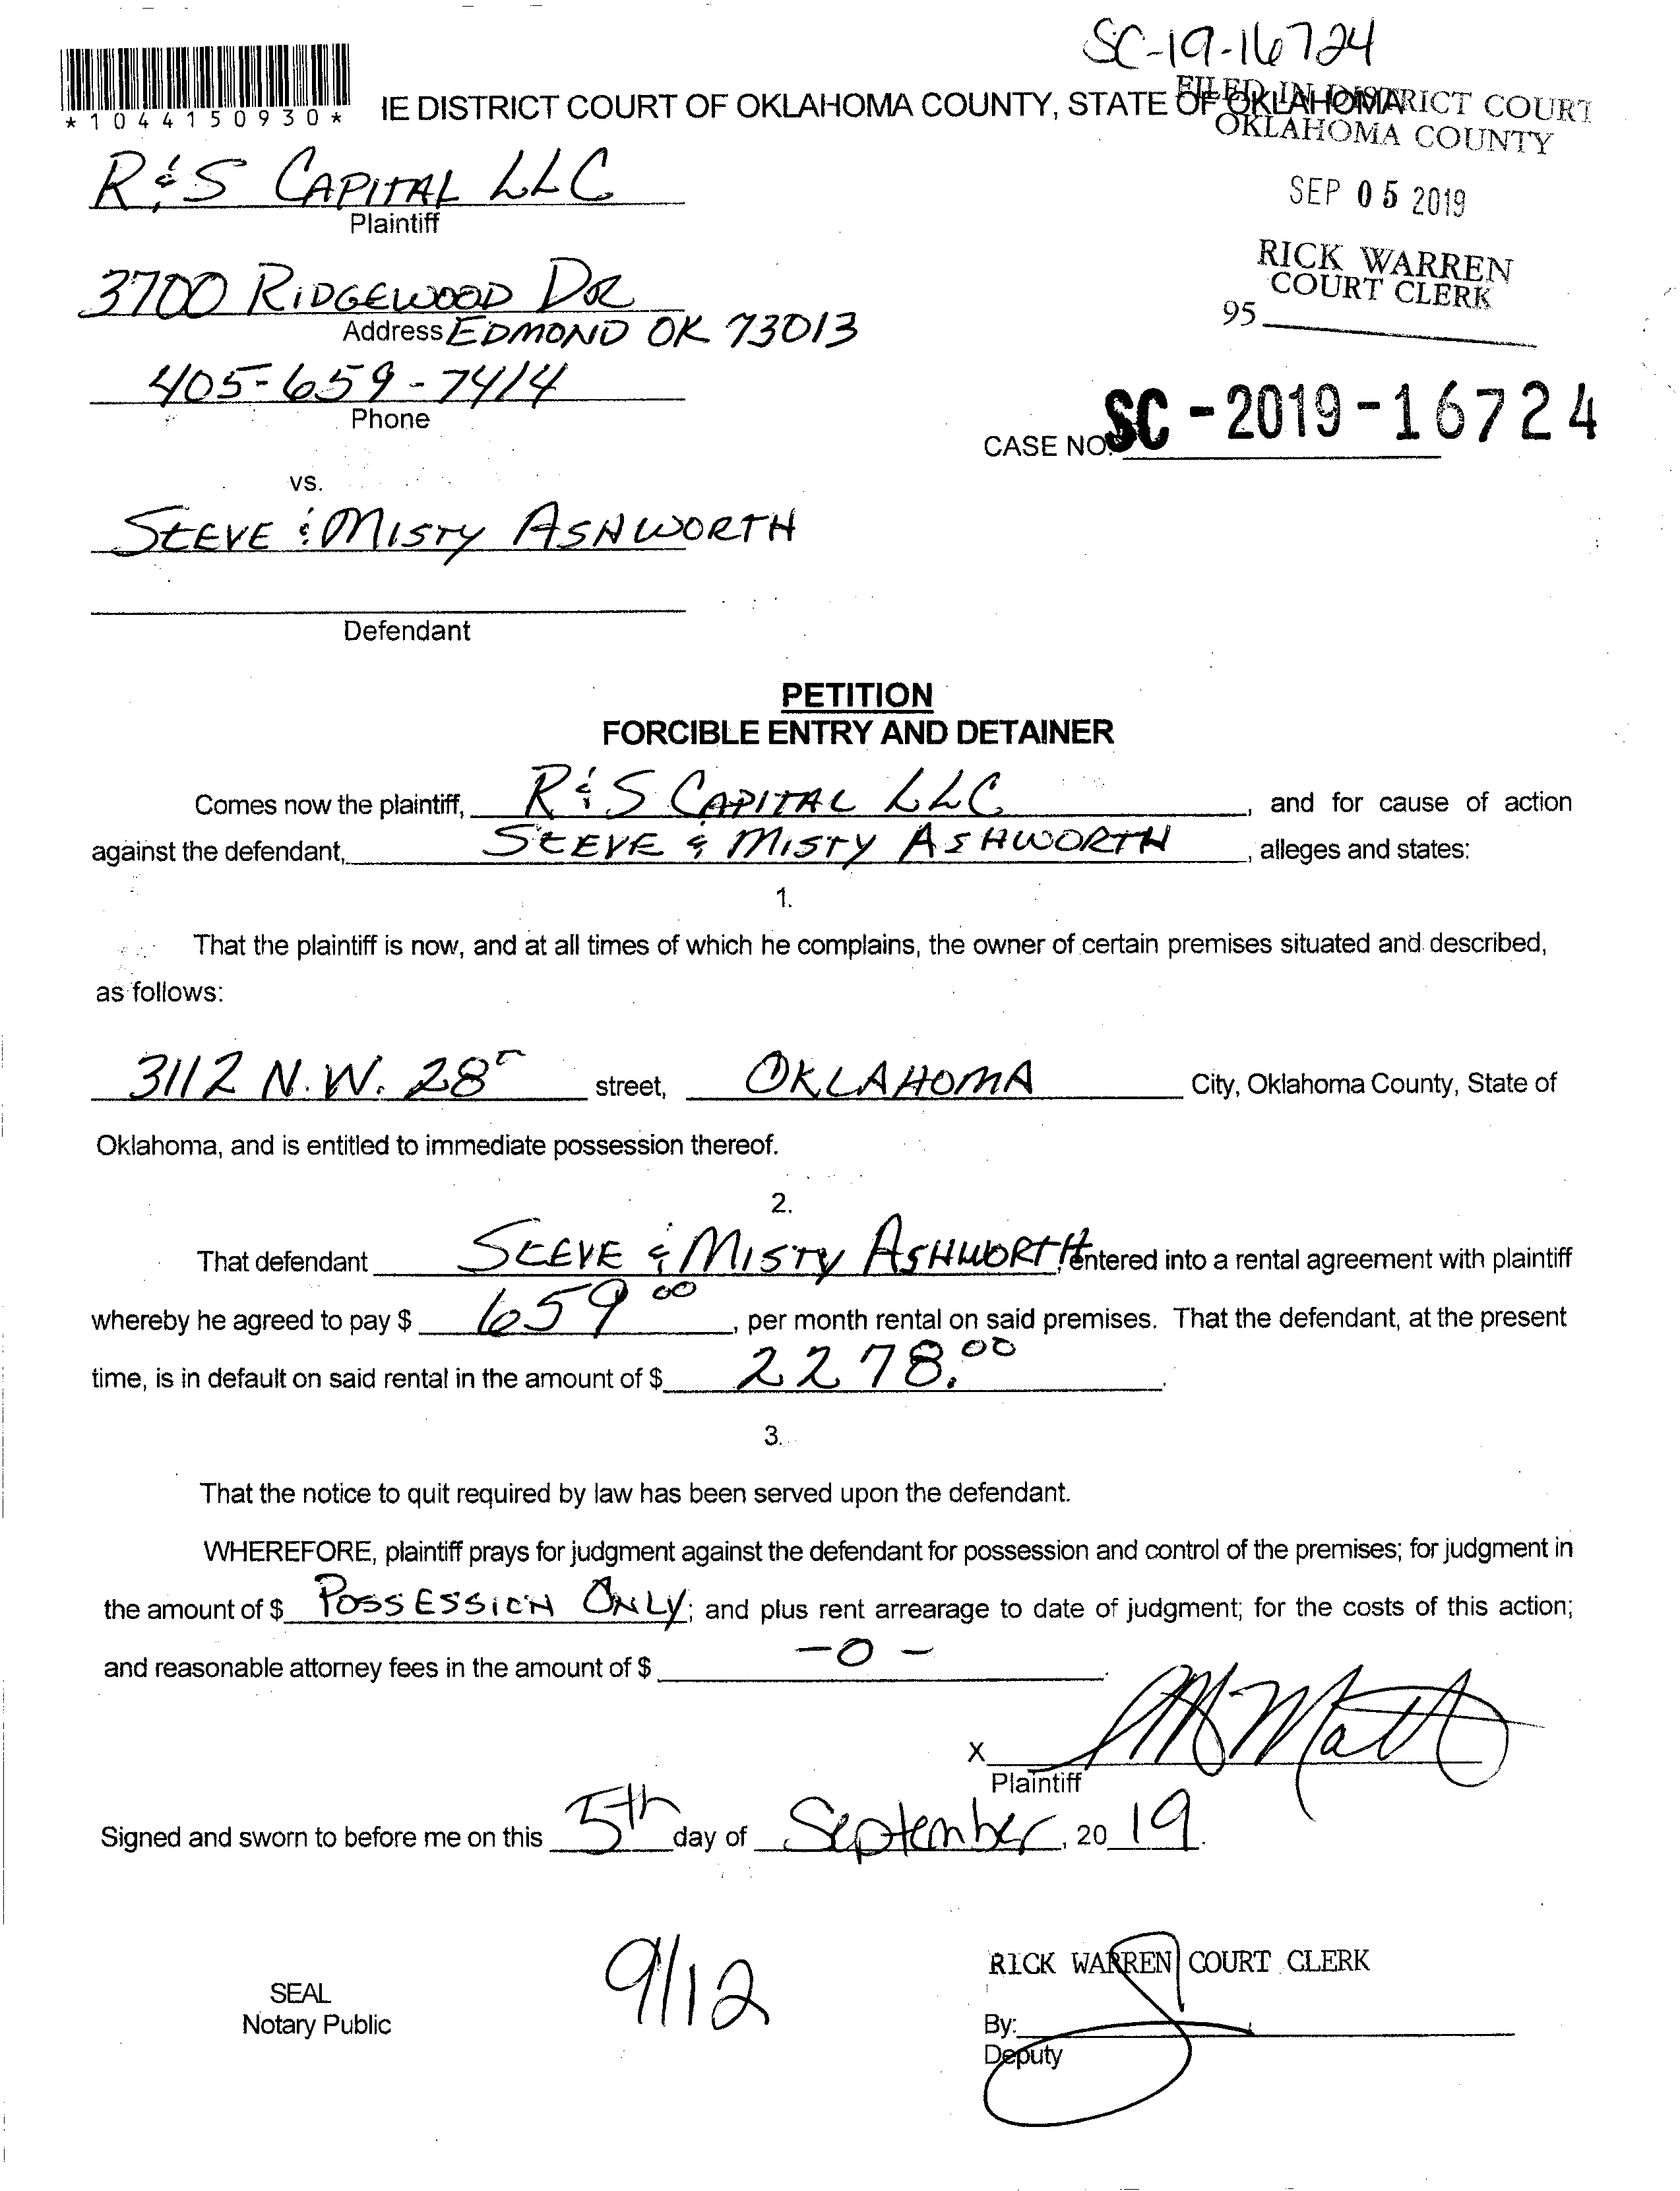 SC-19-16724
*1044150930*
IE DISTRICT COURT OF OKLAHOMA COUNTY, STATE OF OKLAHOMA
FILED IN DISTRICT COURT
OKLAHOMA COUNTY
R & S CAPITAL LLC
Plaintiff
SEP 05 2019
RICK WARREN
COURT CLERK
95
3700 RIDGEWOOD DR
Address EDMOND OK 73013
405-659-7414
Phone
CASE NO. SC-2019-16724
vs.
STEVE & MISTY ASHWORTH
Defendant
PETITION
FORCIBLE ENTRY AND DETAINER
Comes now the plaintiff, R & S CAPITAL LLC, and for cause of action
against the defendant, STEVE & MISTY ASHWORTH, alleges and states:
1.
That the plaintiff is now, and at all times of which he complains, the owner of certain premises situated and described,
as follows:
3112 N.W. 28 street, OKLAHOMA City, Oklahoma County, State of
Oklahoma, and is entitled to immediate possession thereof.
2.
That defendant STEVE & MISTY ASHWORTH, entered into a rental agreement with plaintiff
whereby he agreed to pay $ 659 00, per month rental on said premises. That the defendant, at the present
time, is in default on said rental in the amount of $ 2278.00.
3.
That the notice to quit required by law has been served upon the defendant.
WHEREFORE, plaintiff prays for judgment against the defendant for possession and control of the premises; for judgment in
the amount of $ POSSESSION ONLY; and plus rent arrearage to date of judgment; for the costs of this action;
and reasonable attorney fees in the amount of $ -0-.
X
Plaintiff
Signed and sworn to before me on this 5th day of September, 2019.
9/12
RICK WARREN COURT CLERK
SEAL
Notary Public
By:
Deputy